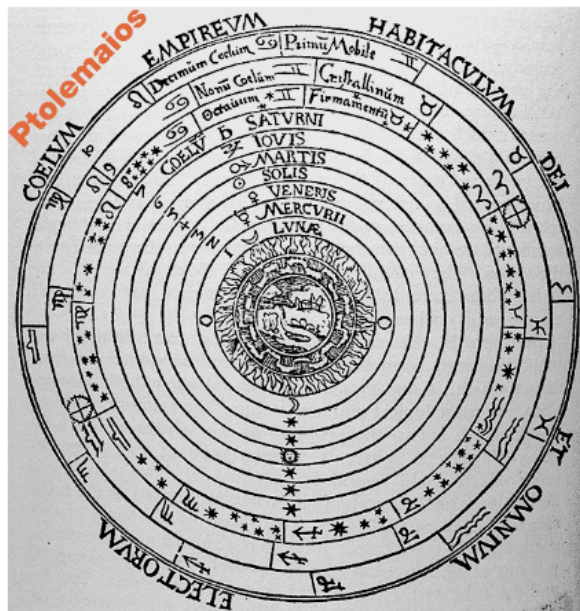 Ptolemaios
COELVM EMPIREVM HABITACVLVM DEI ET OMNIVM ELECTORVM
Decimum Coelum Primū Mobile
Nonū Coelum Cristallinum
Octauum Firmamentū
COELV̄
SATVRNI
IOVIS
MARTIS
SOLIS
VENERIS
MERCVRII
LVNÆ